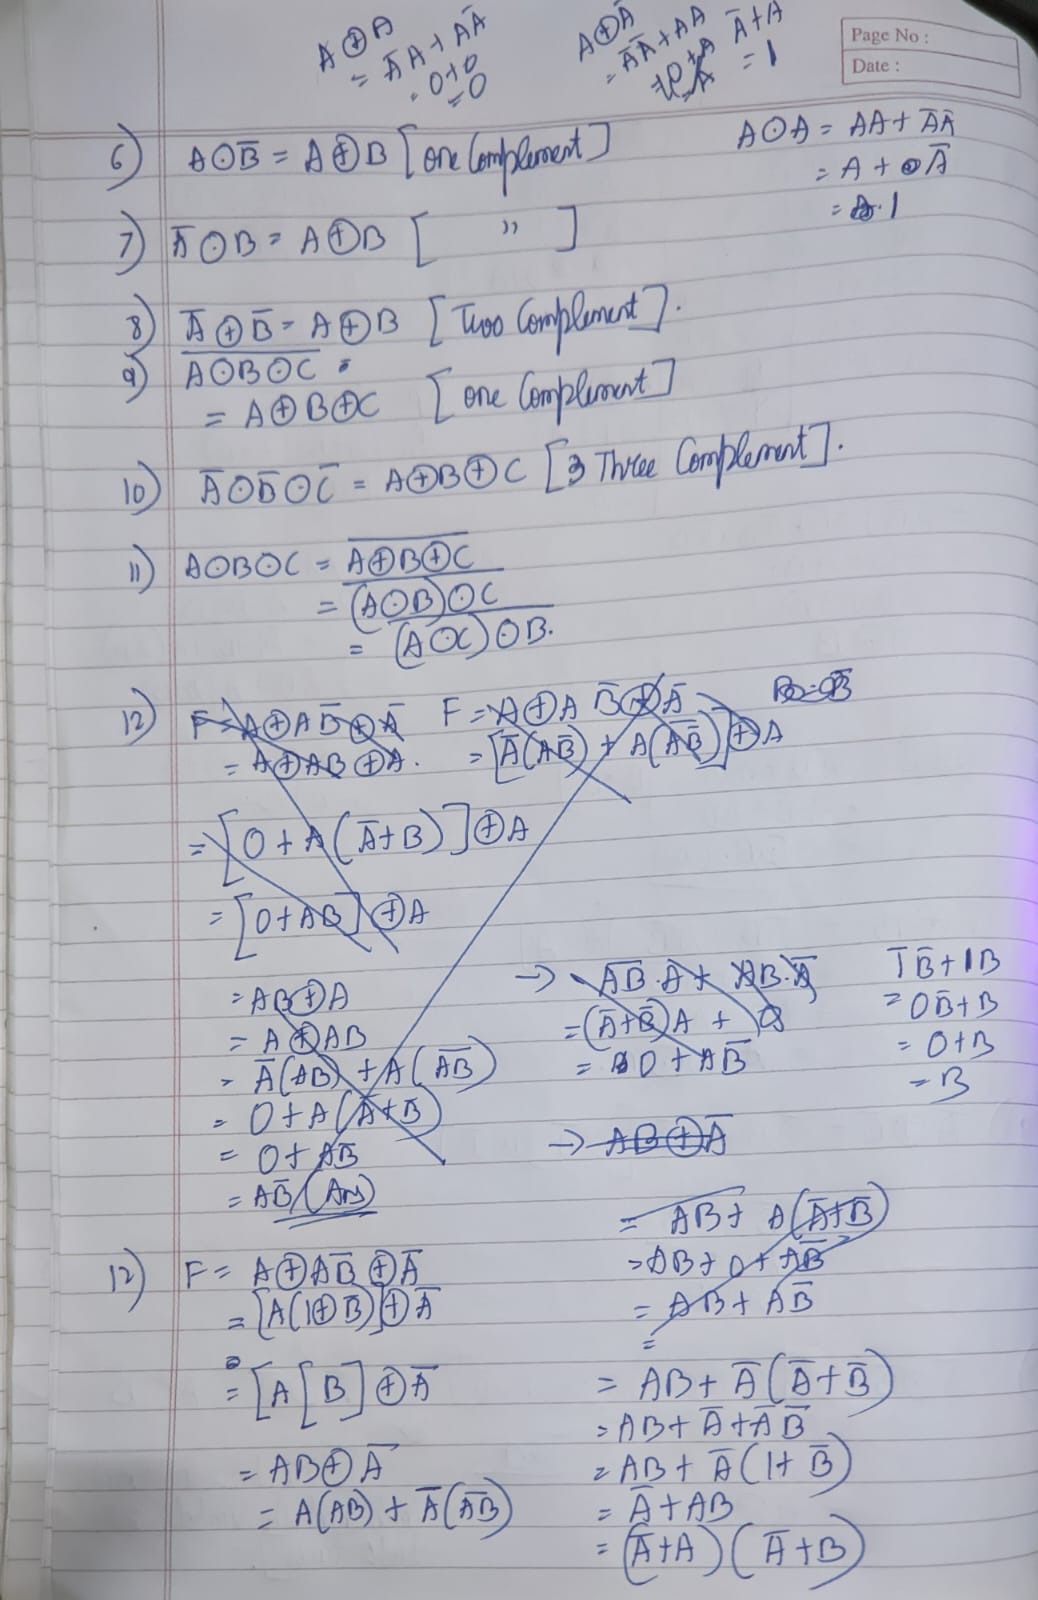 Page No :
Date :
A ⊕ A
= A̅A + AA̅
= 0+0
= 0
A⊕A̅
= A̅A̅ + AA
A̅+A
= 1
A⊙A = AA + A̅A̅
= A + A̅
= 1
6) A⊙B̅ = A⊕B [one Complement]
7) A̅⊙B = A⊕B [ " ]
8) A̅⊕B̅ = A⊕B [Two Complement].
9) \overline{A⊙B⊙C} =
= A⊕B⊕C [one Complement]
10) A̅⊙B̅⊙C̅ = A⊕B⊕C [3 Three Complement].
11) A⊙B⊙C = \overline{A⊕B⊕C}
= \overline{(A⊙B)⊙C}
= \overline{(A⊙C)⊙B}.
12) F = A⊕AB̅⊕A̅
= A⊕AB⊕A.
F = A⊕A B̅⊕A̅
= [A̅(AB̅) + A(\overline{AB̅})]⊕A
= [0 + A(A̅+B)]⊕A
= [0+AB]⊕A
= AB⊕A
= A⊕AB
= A̅(AB) + A(\overline{AB})
= 0 + A(A̅+B̅)
= 0 + AB̅
= AB̅ (Ans)
→ \overline{AB}.A + AB.A̅
= (A̅+B̅)A + 0
= 0 + AB̅
1̅B̅+1B
= 0B̅+B
= 0+B
= B
→ AB⊕A̅
= AB + A(A̅+B̅)
= AB + 0 + AB̅
= AB + AB̅
=
12) F = A⊕AB̅⊕A̅
= [A(1⊕B̅)]⊕A̅
= [A[B]⊕A̅
= AB⊕A̅
= A(AB) + A̅(\overline{AB})
= AB + A̅(A̅+B̅)
= AB + A̅ + A̅B̅
= AB + A̅(1+B̅)
= A̅ + AB
= (A̅+A)(A̅+B)